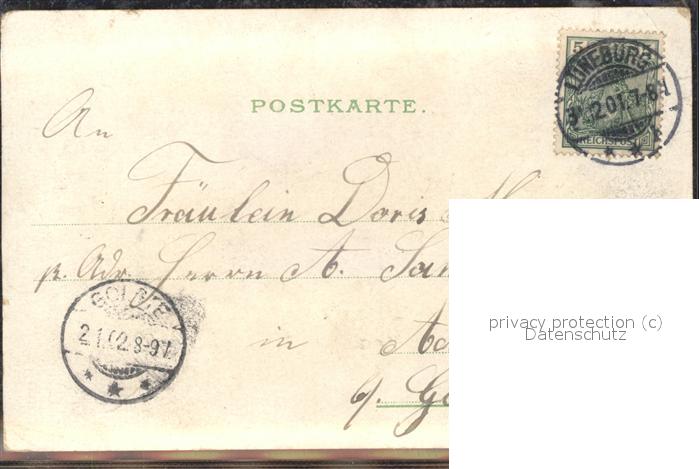 POSTKARTE.
5
LÜNEBURG
31.12.01.7-8N
REICHSPOST
An
Fräulein Doris
p. Adr. Herrn A. San
in
g. Go
GOLDBE
2.1.02.8-9V.
privacy protection (c)
Datenschutz